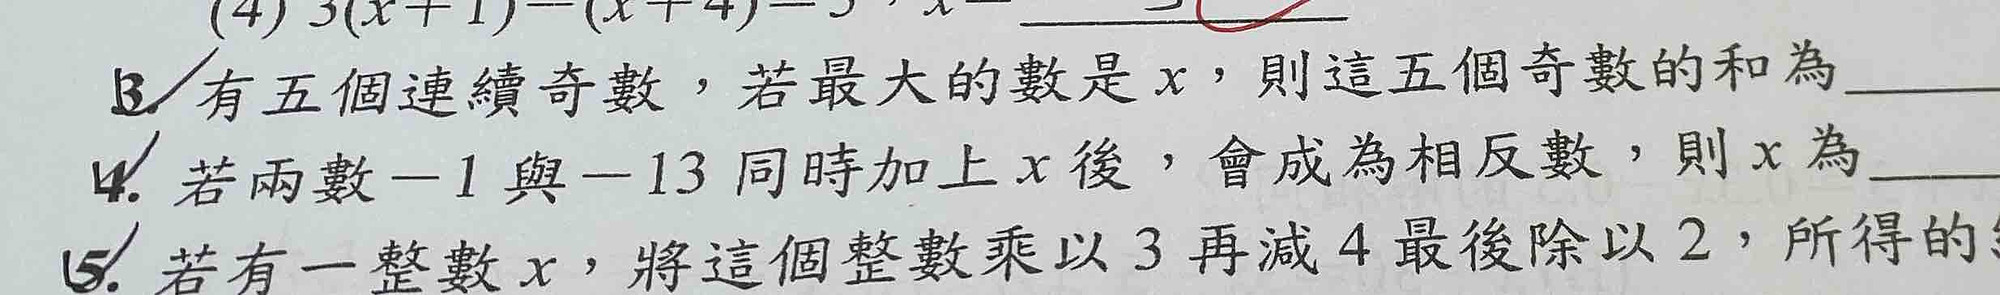 (4) 3(x+1)-(x+4)=5，x=
3. 有五個連續奇數，若最大的數是x，則這五個奇數的和為
4. 若兩數-1與-13同時加上x後，會成為相反數，則x為
5. 若有一整數x，將這個整數乘以3再減4最後除以2，所得的